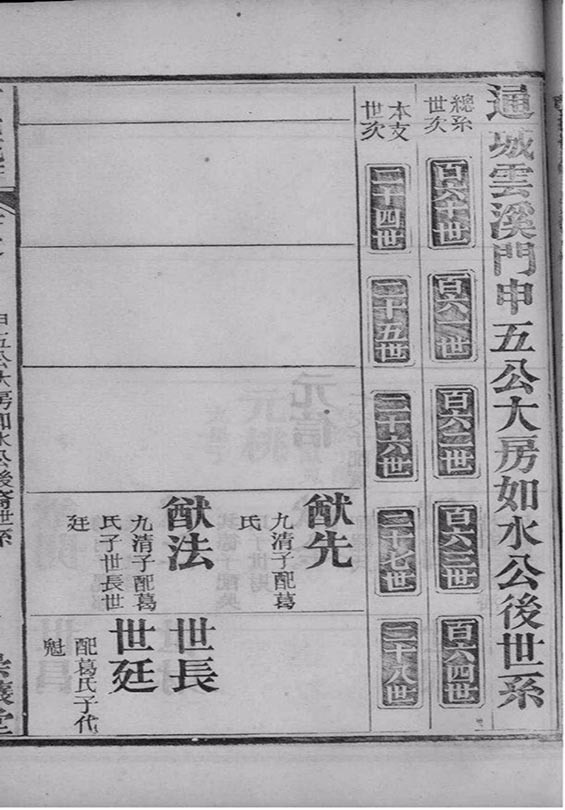 通城雲溪門申五公大房如水公後世系
總系世次
百六十世
百六一世
百六二世
百六三世
百六四世
本支世次
二十四世
二十五世
二十六世
二十七世
二十八世
猷先
九清子配葛
氏
猷法
九清子配葛
氏子世長世
廷
世長
世廷
配葛氏子代
魁
申五公大房如水公後裔世系